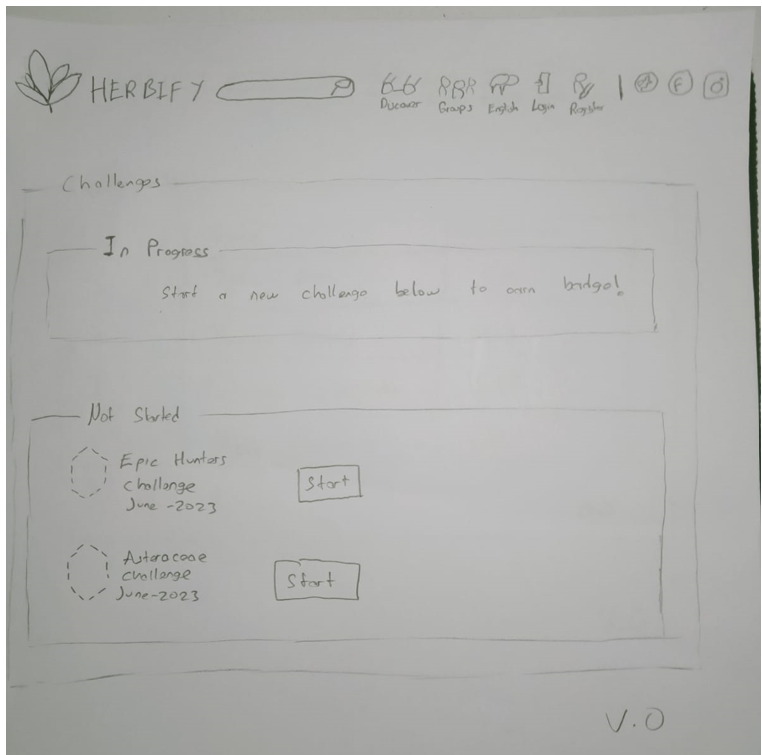 HERBIFY
Discover Groups English Login Register | f
Challenges
In Progress
Start a new challenge below to earn badge!
Not Started
Epic Hunters
challenge
June - 2023
Start
Asteraceae
challenge
June-2023
Start
V.0